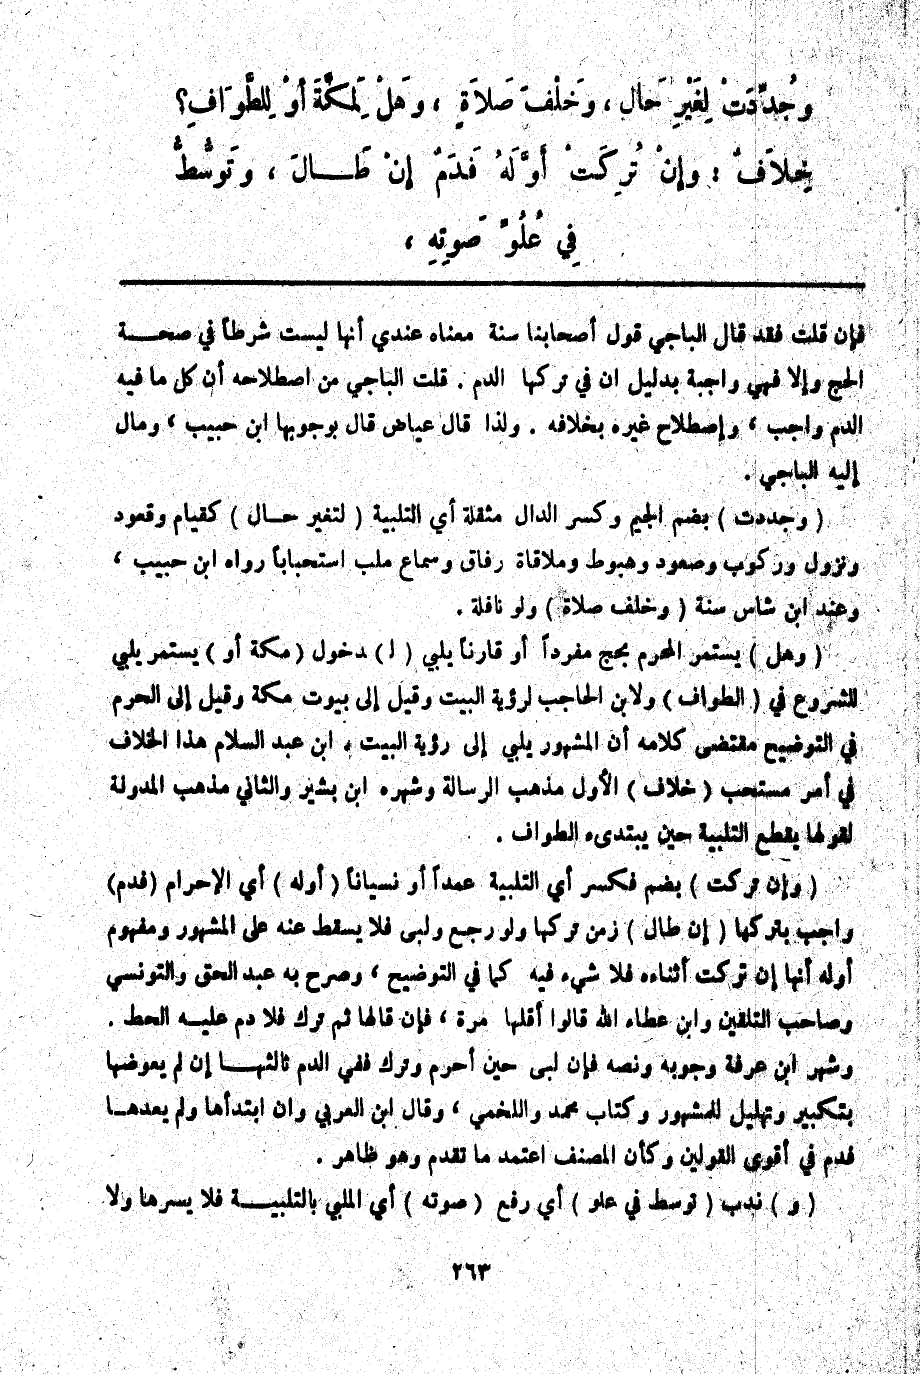 وَجُدِّدَتْ لِغَيْرِ حَالٍ ، وَخَلْفَ صَلَاةٍ ، وَهَلْ لِمَكَّةَ أَوْ لِلطَّوَافِ ؟
خِلَافٌ : وَإِنْ تُرِكَتْ أَوَّلَهُ فَدَمٌ إِنْ طَـالَ ، وَتَوَسُّطٌ
فِي عُلُوِّ صَوْتِهِ ،
فإن قلت فقد قال الباجي قول أصحابنا سنة معناه عندي أنها ليست شرطاً في صحــة
الحج وإلا فهي واجبة بدليل ان في تركها الدم . قلت الباجي من اصطلاحه أن كل ما فيه
الدم واجب ، وإصطلاح غيره بخلافه . ولذا قال عياض قال بوجوبها ابن حبيب ، ومال
إليه الباجي .
( وجددت ) بضم الجيم وكسر الدال مثقلة أي التلبية ( لتغير حــال ) كقيام وقعود
ونزول وركوب وصعود وهبوط وملاقاة رفاق وسماع ملب استحباباً رواه ابن حبيب ،
وعند ابن شاس سنة ( وخلف صلاة ) ولو نافلة .
( وهل ) يستمر المحرم بحج مفرداً أو قارناً يلبي ( ل ) دخول ( مكة أو ) يستمر يلبي
للشروع في ( الطواف ) ولابن الحاجب لرؤية البيت وقيل إلى بيوت مكة وقيل إلى الحرم
في التوضيح مقتضى كلامه أن المشهور يلبي إلى رؤية البيت ، ابن عبد السلام هذا الخلاف
في أمر مستحب ( خلاف ) الأول مذهب الرسالة وشهره ابن بشير والثاني مذهب المدونة
لقولها يقطع التلبية حين يبتدىء الطواف .
( وإن تركت ) بضم فكسر أي التلبية عمداً أو نسياناً ( أوله ) أي الإحرام (فدم)
واجب بتركها ( إن طال ) زمن تركها ولو رجع ولبى فلا يسقط عنه على المشهور ومفهوم
أوله أنها إن تركت أثناءه فلا شيء فيه كما في التوضيح ، وصرح به عبد الحق والتونسي
وصاحب التلقين وابن عطاء الله قالوا أقلها مرة ، فإن قالها ثم ترك فلا دم عليــه الحط .
وشهر ابن عرفة وجوبه ونصه فإن لبى حين أحرم وترك ففي الدم ثالثهــا إن لم يعوضها
بتكبير وتهليل للمشهور وكتاب محمد واللخمي ، وقال ابن العربي وان ابتدأها ولم يعدهــا
فدم في أقوى القولين وكأن المصنف اعتمد ما تقدم وهو ظاهر .
( و ) ندب ( توسط في علو ) أي رفع ( صوته ) أي الملبي بالتلبيـــة فلا يسرها ولا
٢٦٣